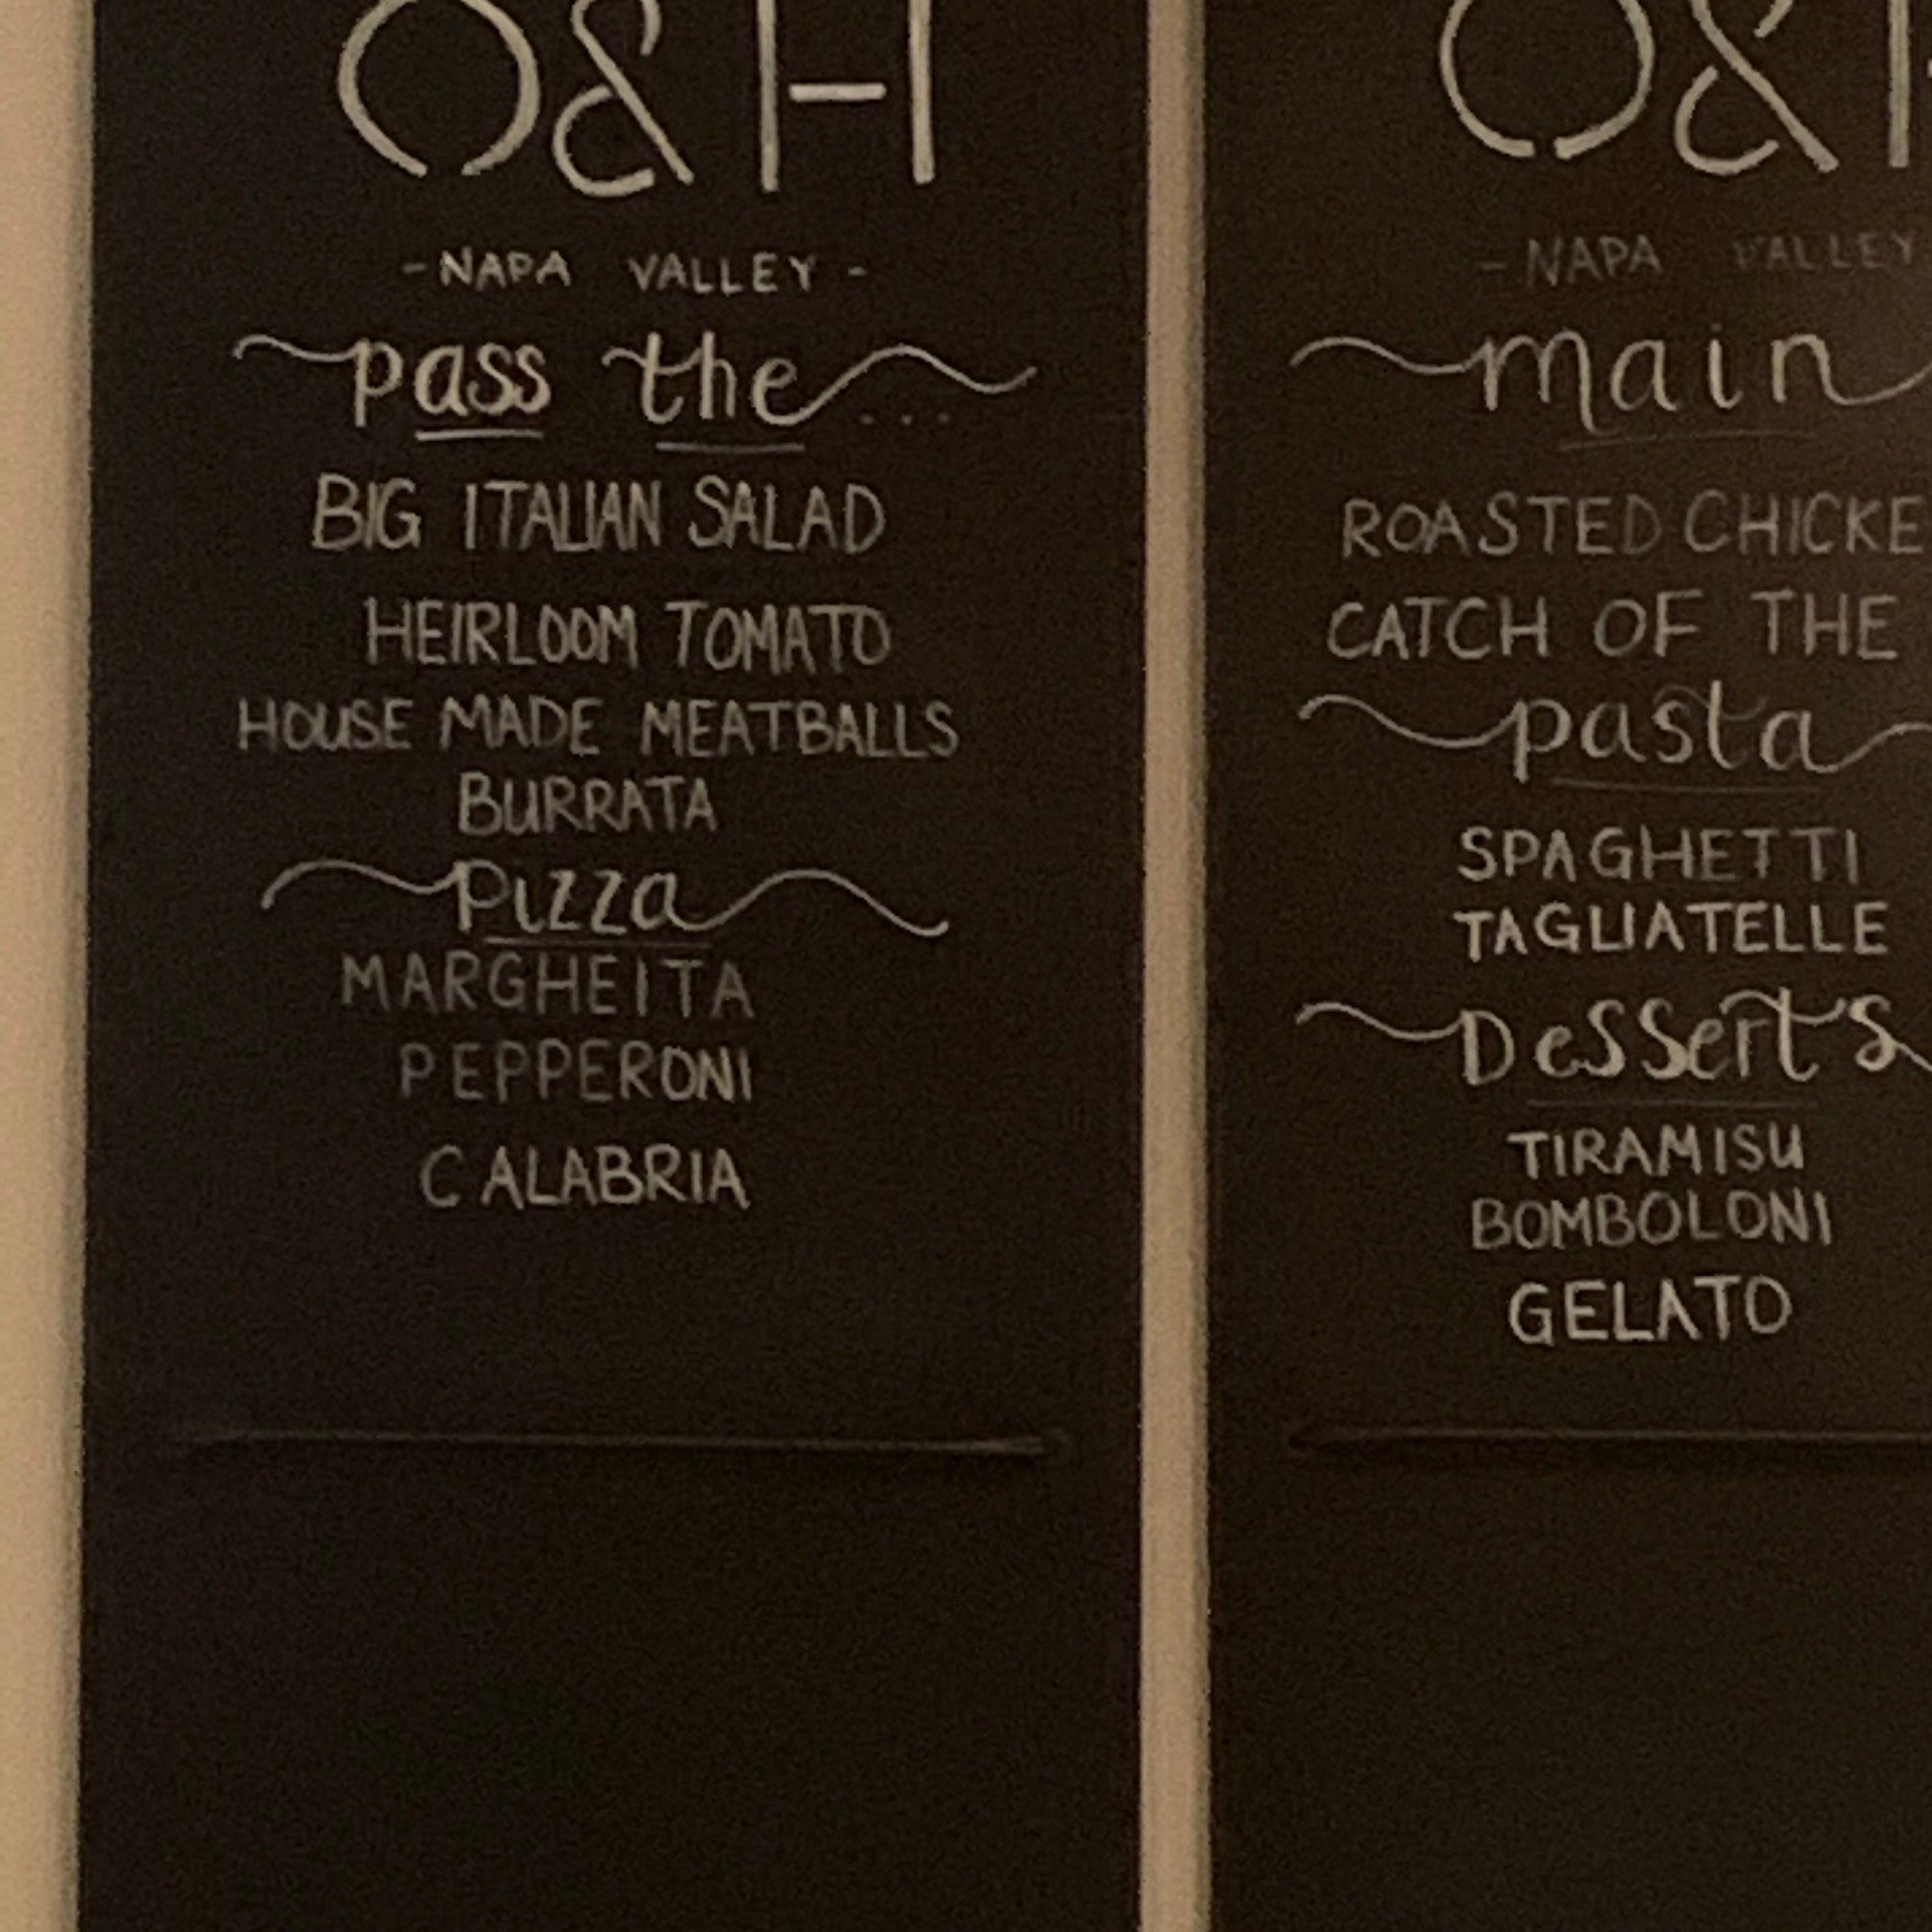 O&H
-NAPA VALLEY-
pass the...
BIG ITALIAN SALAD
HEIRLOOM TOMATO
HOUSE MADE MEATBALLS
BURRATA
Pizza
MARGHEITA
PEPPERONI
CALABRIA
O&
-NAPA VALLEY
main
ROASTED CHICKE
CATCH OF THE
pasta
SPAGHETTI
TAGLIATELLE
Desserts
TIRAMISU
BOMBOLONI
GELATO